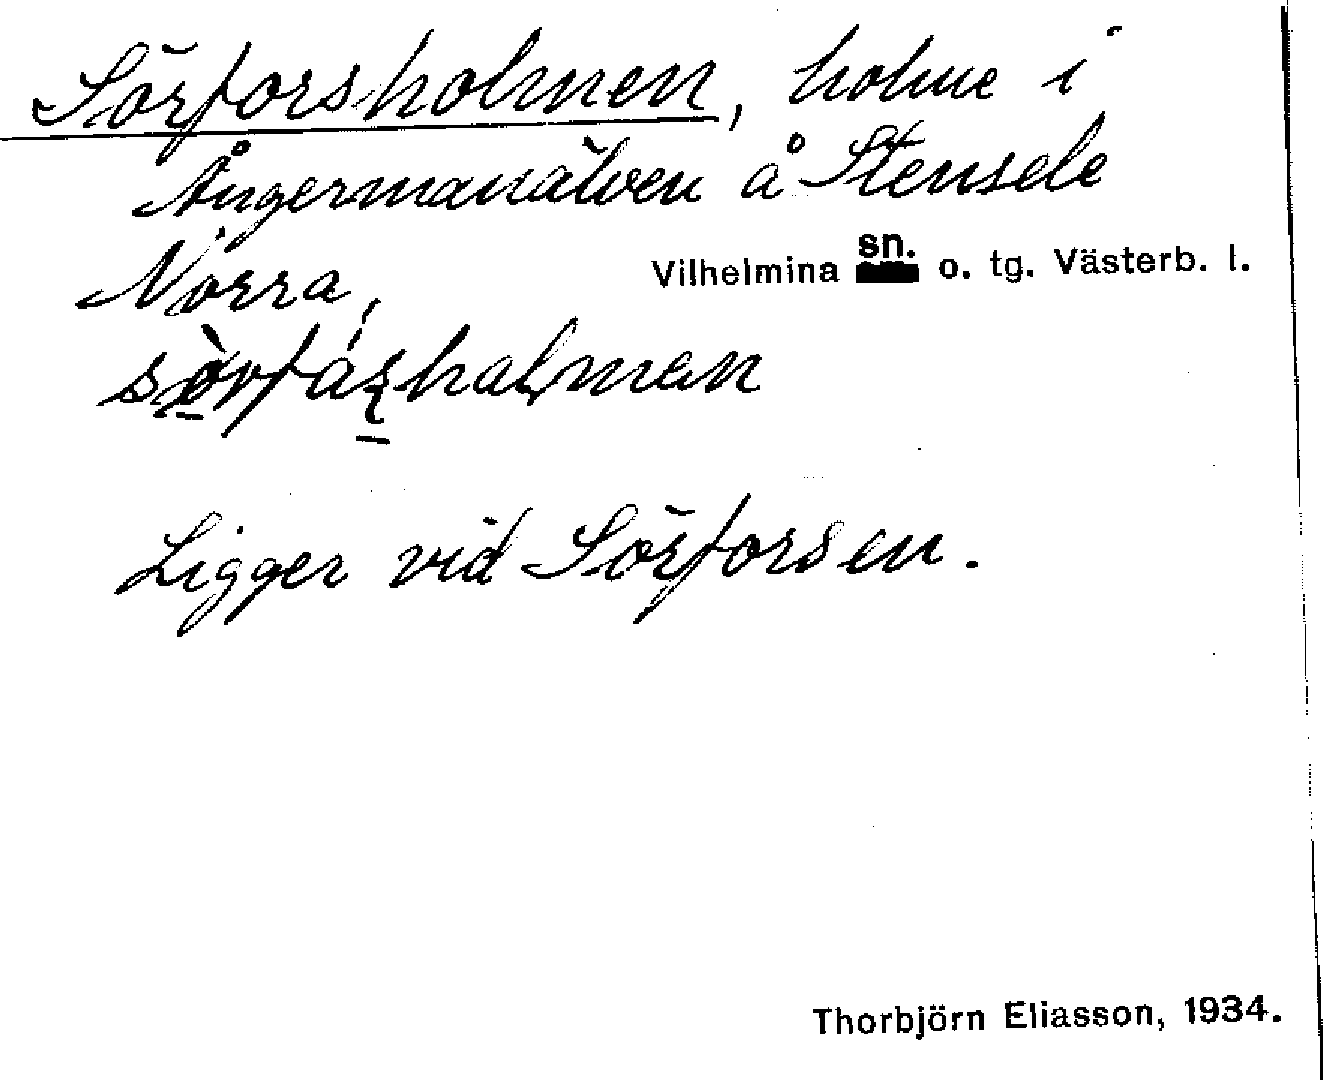 Sörforsholmen, holme i
Ångermanälven å Stensele
Norra,
Vilhelmina sn. o. tg. Västerb. l.
Ligger vid Sörforsen.
Thorbjörn Eliasson, 1934.